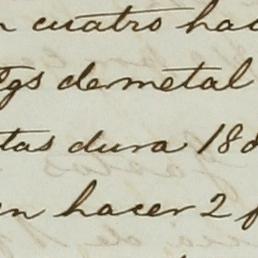 n cuatro hac
Kgs de metal
tas dura 188
en hacer 2 f